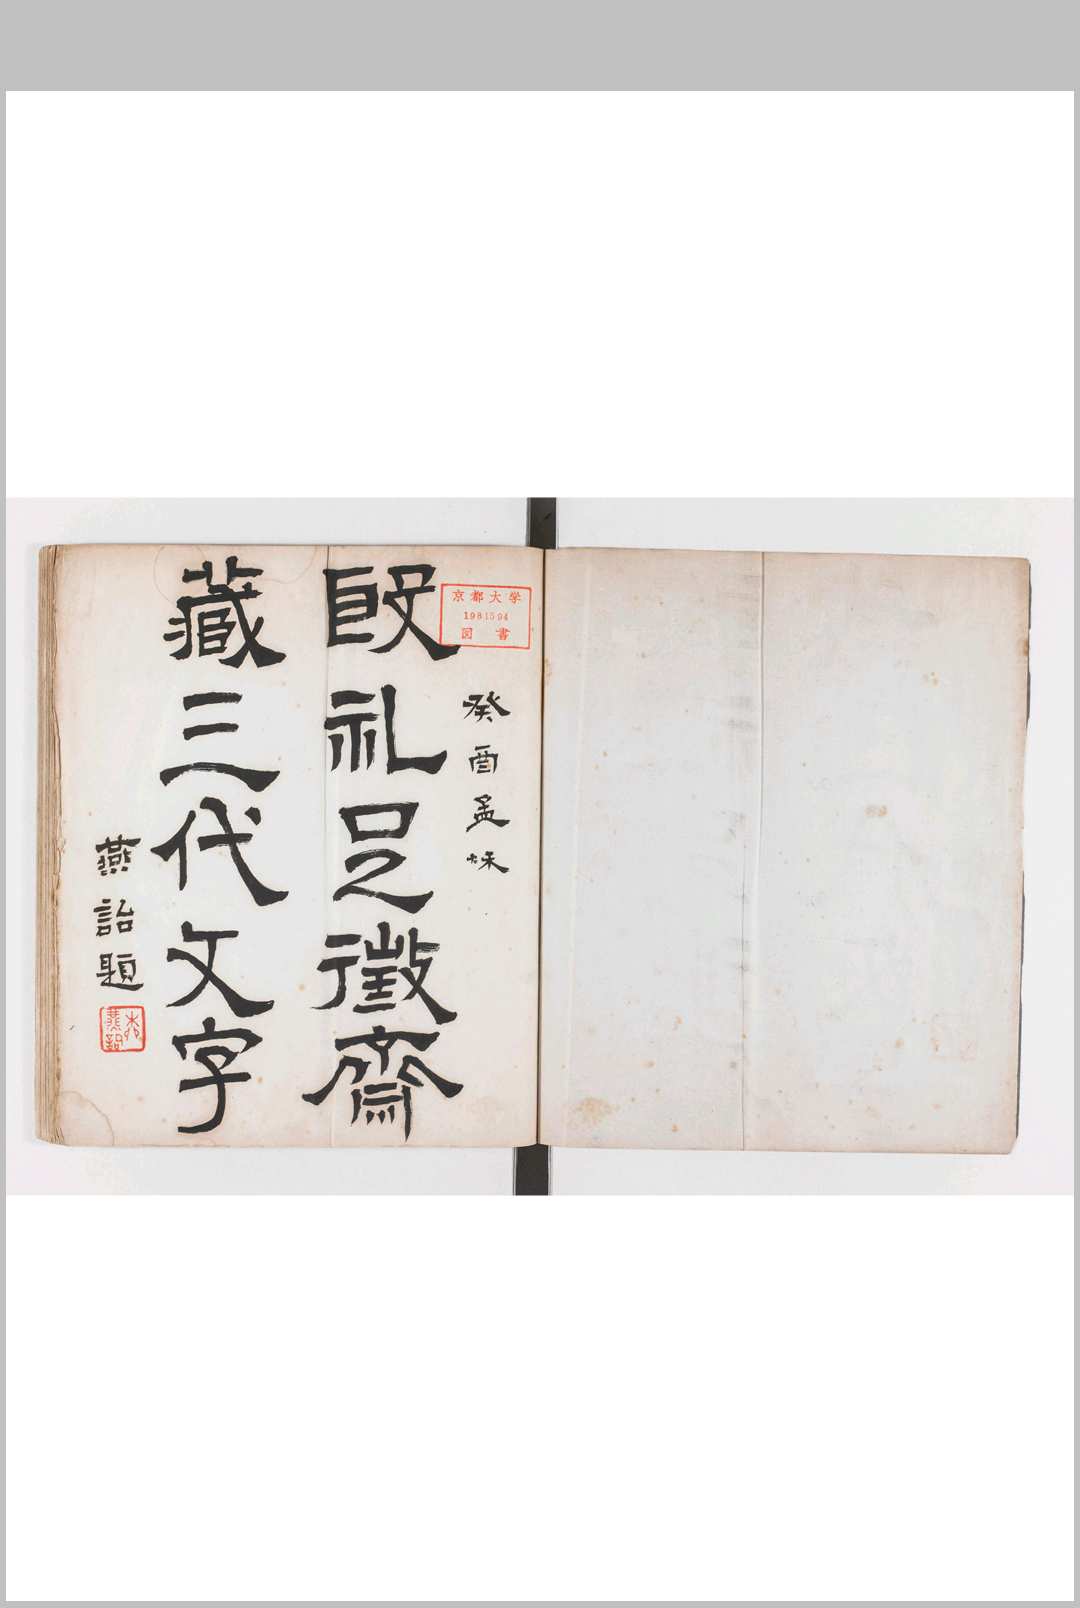 京都大学
1981594
図書
癸酉孟秌
殷礼足徵齋
藏三代文字
燕詒題